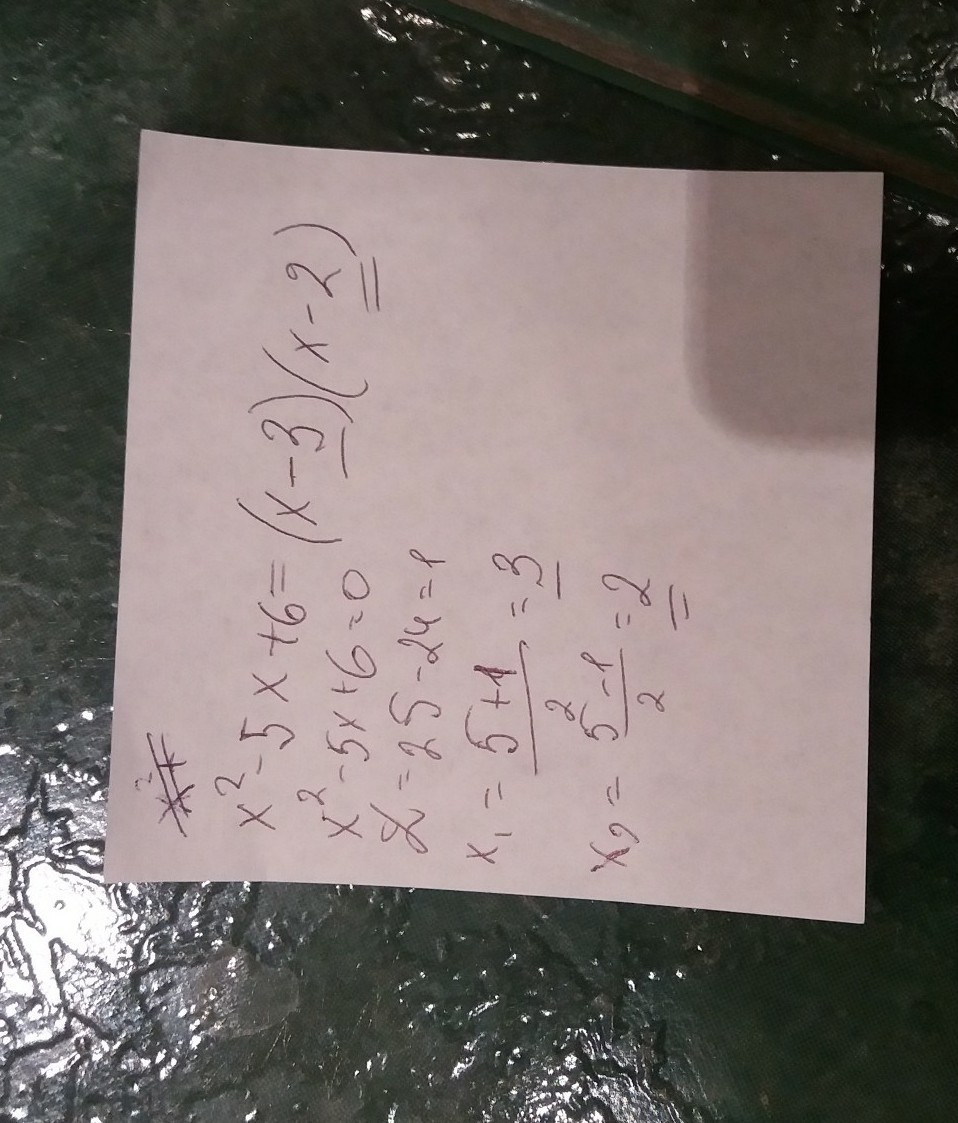 x² - 5x + 6 = (x - 3)(x - 2)
x² - 5x + 6 = 0
D = 25 - 24 = 1
x₁ = (5 + 1)/2 = 3
x₂ = (5 - 1)/2 = 2